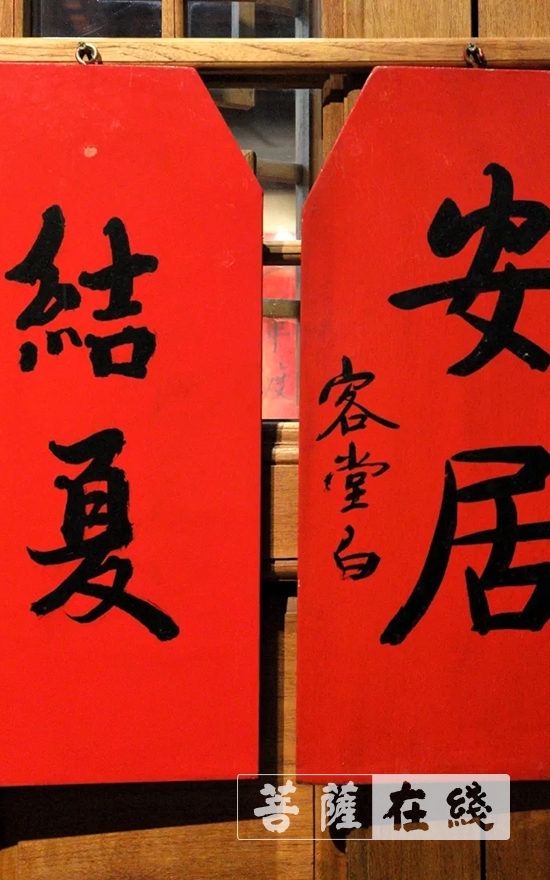 結夏
安居
客堂白
菩薩在綫